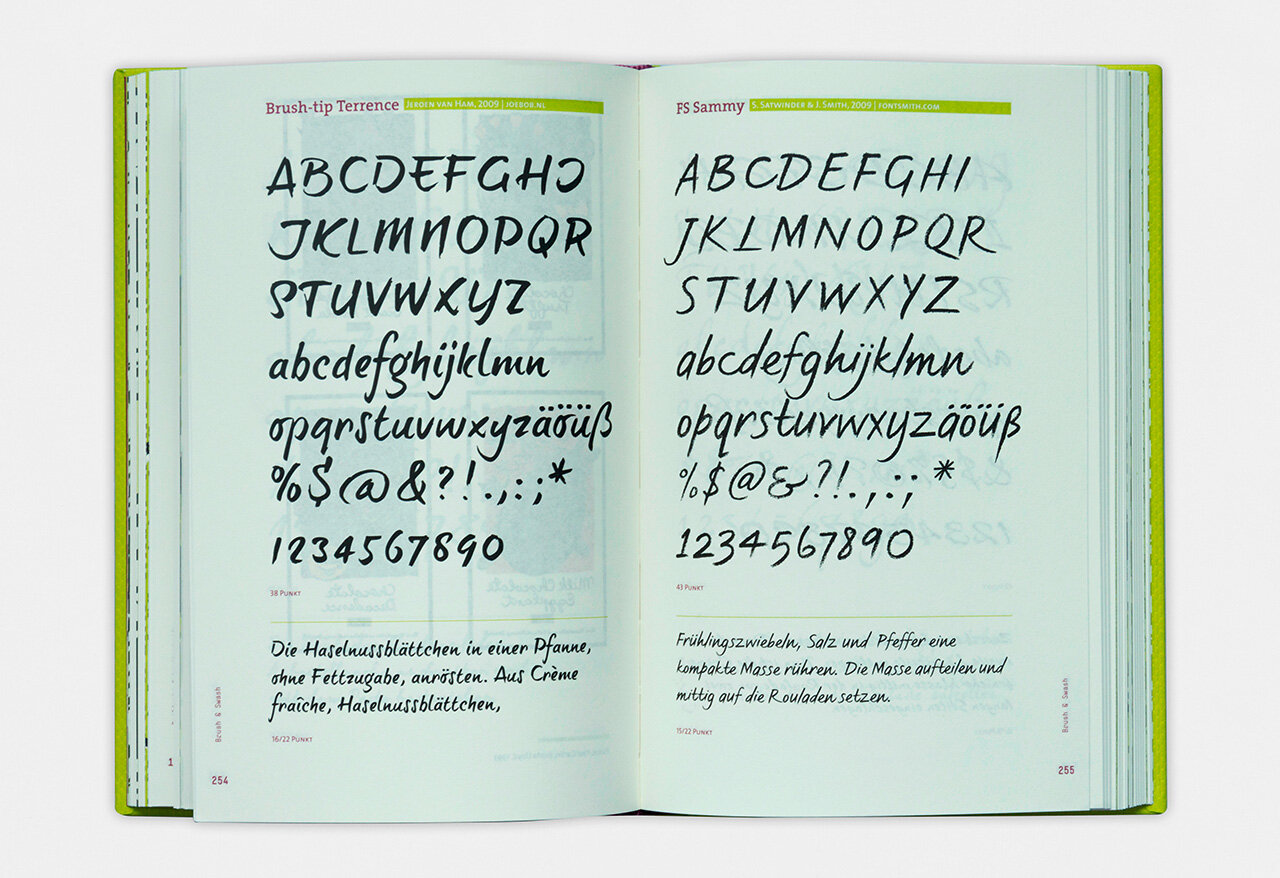 Brush-tip Terrence JEROEN VAN HAM, 2009 | JOEBOB.NL
ABCDEFGHI
JKLMNOPQR
STUVWXYZ
abcdefghijklmn
opqrstuvwxyzäöüß
%$@&?!.,:;*
1234567890
38 PUNKT
Die Haselnussblättchen in einer Pfanne,
ohne Fettzugabe, anrösten. Aus Crème
fraîche, Haselnussblättchen,
16/22 PUNKT
Brush & Swash
1
254
FS Sammy S. SATWINDER & J. SMITH, 2009 | FONTSMITH.COM
ABCDEFGHI
JKLMNOPQR
STUVWXYZ
abcdefghijklmn
opqrstuvwxyzäöüß
%$@&?!.,:;*
1234567890
43 PUNKT
Frühlingszwiebeln, Salz und Pfeffer eine
kompakte Masse rühren. Die Masse aufteilen und
mittig auf die Rouladen setzen.
15/22 PUNKT
Brush & Swash
255